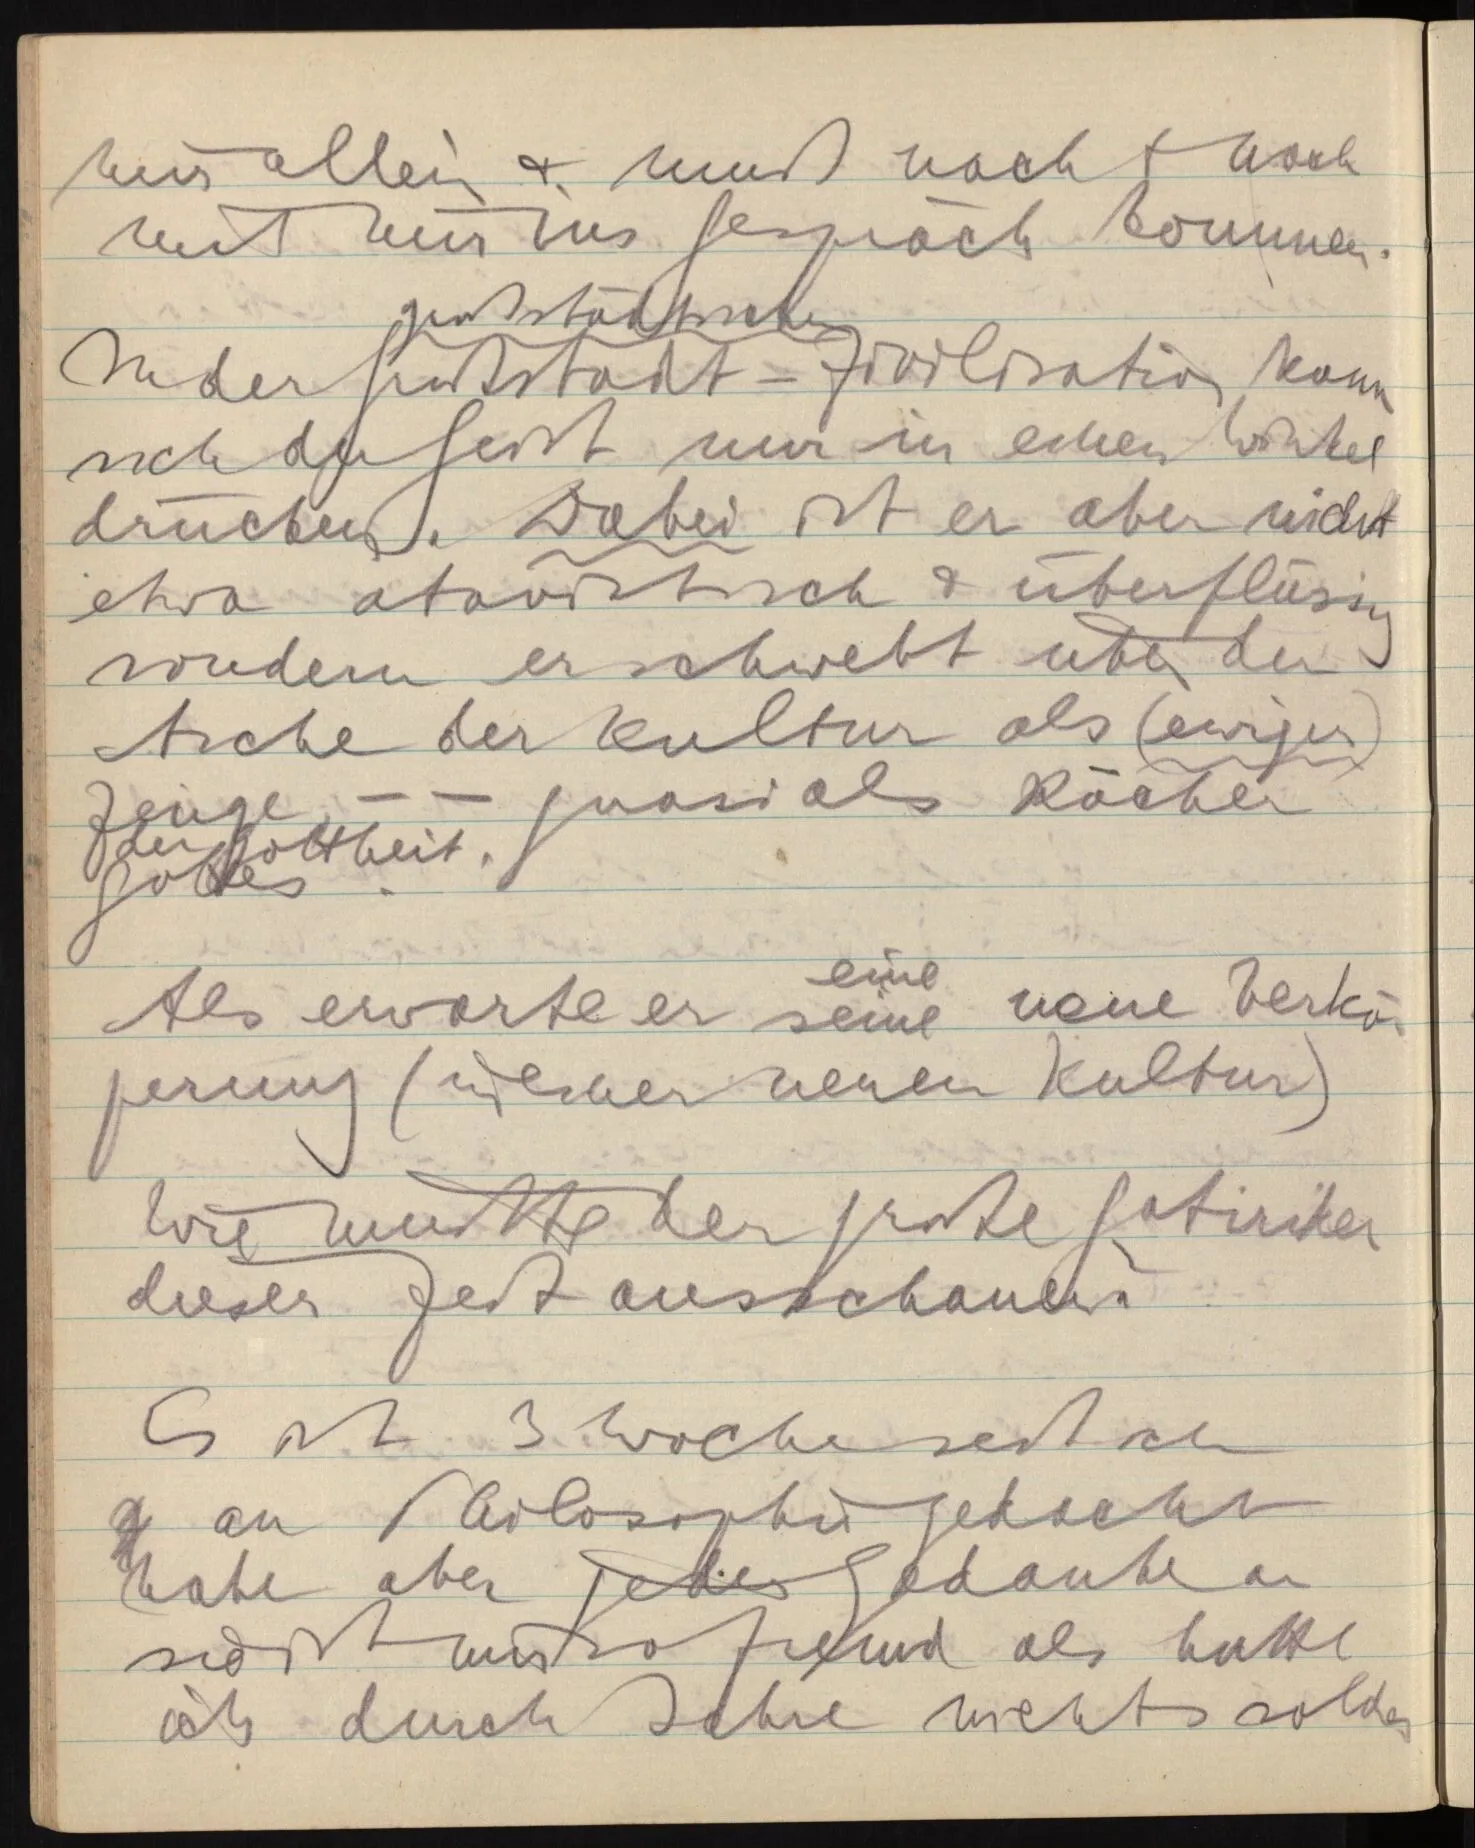 mir allein & muß nach & nach
mit mir ins Gespräch kommen.
großstädtischen
In der Großstadt-Zivilisation kann
sich der Geist nur in einen Winkel
drücken. Dabei ist er aber nicht
etwa atavistisch & überflüssig
sondern er schwebt über der
Asche der Kultur als (ewiger)
Zeuge – – quasi als Rächer
der Gottheit.
Gottes
Als erwarte er eine
seine neue Verkör-
perung (in einer neuen Kultur)
Wie müßte der große Satiriker
dieser Zeit ausschauen?
Es ist 3 Wochen seit ich
an Philosophie gedacht
habe aber jeder Gedanke an
sie ist mir so fremd als hätte
ich durch Jahre nichts solches